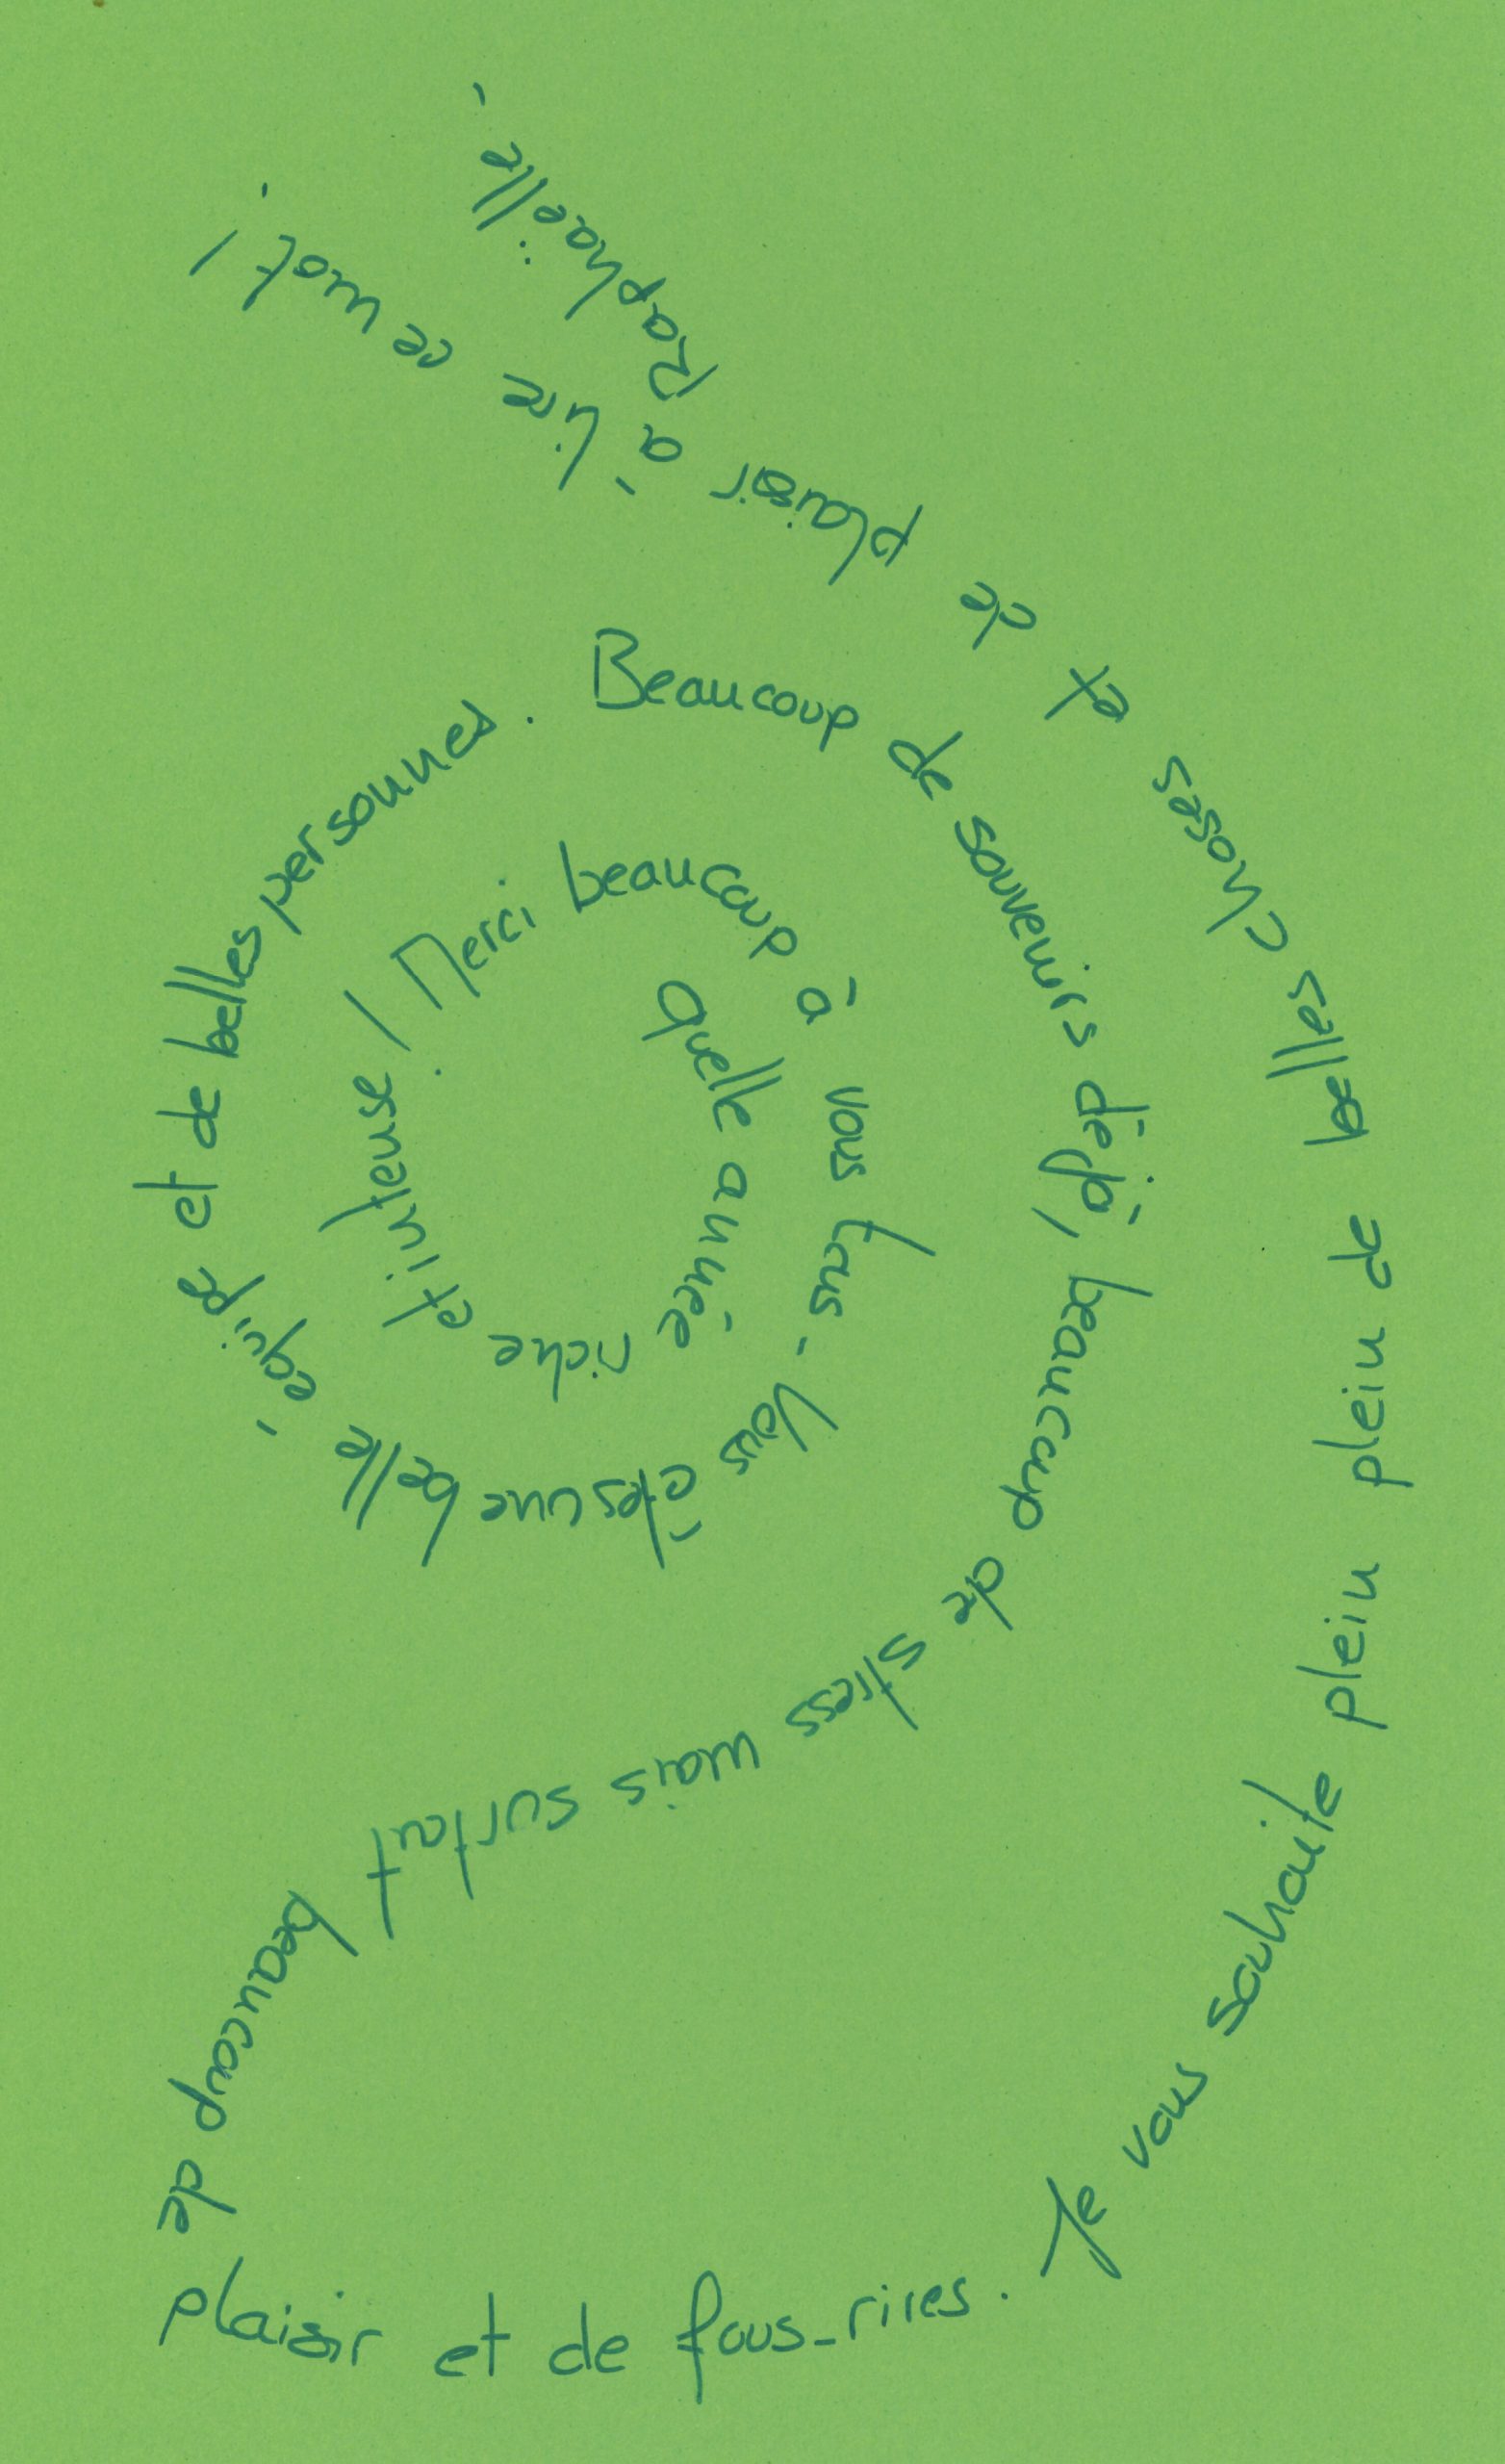 Quelle année riche et intense ! Merci beaucoup à vous tous. Vous êtes une belle équipe et de belles personnes. Beaucoup de souvenirs déjà, beaucoup de stress mais surtout beaucoup de plaisir et de fous-rires. Je vous souhaite plein plein de belles choses et de plaisir à lire ce mot !
Raphaëlle.